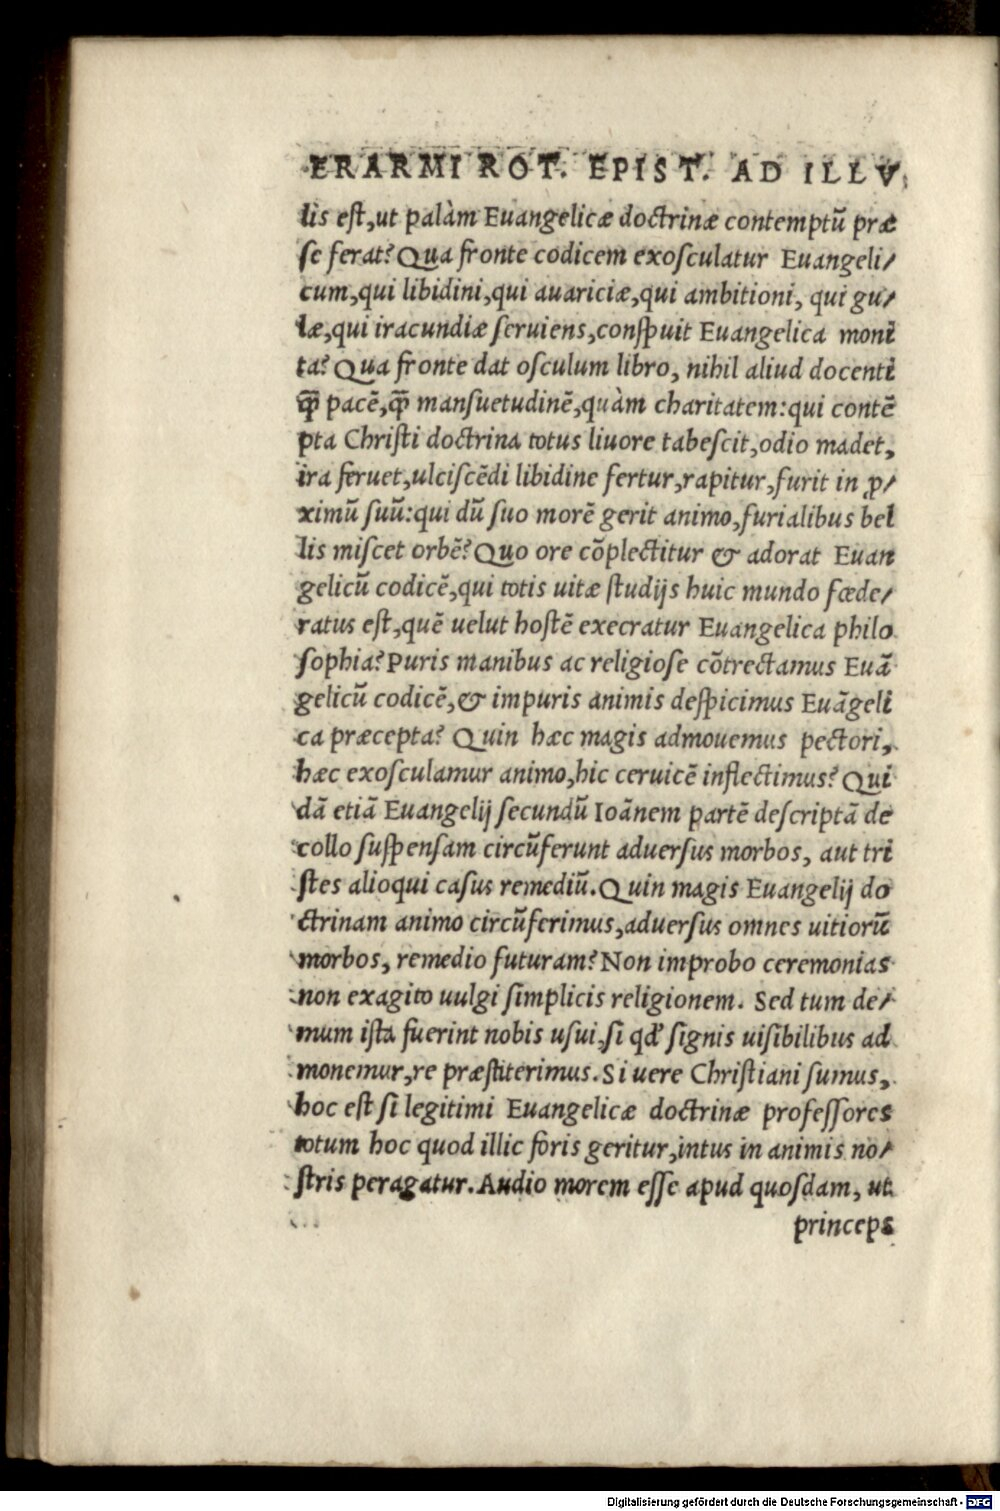 ERARMI ROT. EPIST. AD ILLV
lis est,ut palàm Euangelicæ doctrinæ contemptū præ
se ferat? Qua fronte codicem exosculatur Euangeli/
cum,qui libidini,qui auariciæ,qui ambitioni, qui gu/
læ,qui iracundiæ seruiens,conspuit Euangelica moni
ta? Qua fronte dat osculum libro, nihil aliud docenti
q̄ꝫ pacē,q̄ꝫ mansuetudinē,quàm charitatem:qui contē
pta Christi doctrina totus liuore tabescit,odio madet,
ira feruet,ulciscēdi libidine fertur,rapitur,furit in ꝓ/
ximū suū:qui dū suo morē gerit animo,furialibus bel
lis miscet orbē? Quo ore cōplectitur & adorat Euan
gelicū codicē,qui totis uitæ studijs huic mundo fœde/
ratus est,quē uelut hostē execratur Euangelica philo
sophia? Puris manibus ac religiose cōtrectamus Euā
gelicū codicē,& impuris animis despicimus Euāgeli
ca præcepta? Quin hæc magis admouemus pectori,
hæc exosculamur animo,hic ceruicē inflectimus? Qui
dā etiā Euangelij secundū Ioānem partē descriptā de
collo suspensam circūferunt aduersus morbos, aut tri
stes alioqui casus remediū. Quin magis Euangelij do
ctrinam animo circūferimus,aduersus omnes uitiorū
morbos, remedio futuram? Non improbo ceremonias
non exagito uulgi simplicis religionem. Sed tum de/
mum ista fuerint nobis usui,si qd' signis uisibilibus ad
monemur,re præstiterimus. Si uere Christiani sumus,
hoc est si legitimi Euangelicæ doctrinæ professores
totum hoc quod illic foris geritur,intus in animis no/
stris peragatur. Audio morem esse apud quosdam, ut
princeps
Digitalisierung gefördert durch die Deutsche Forschungsgemeinschaft - DFG